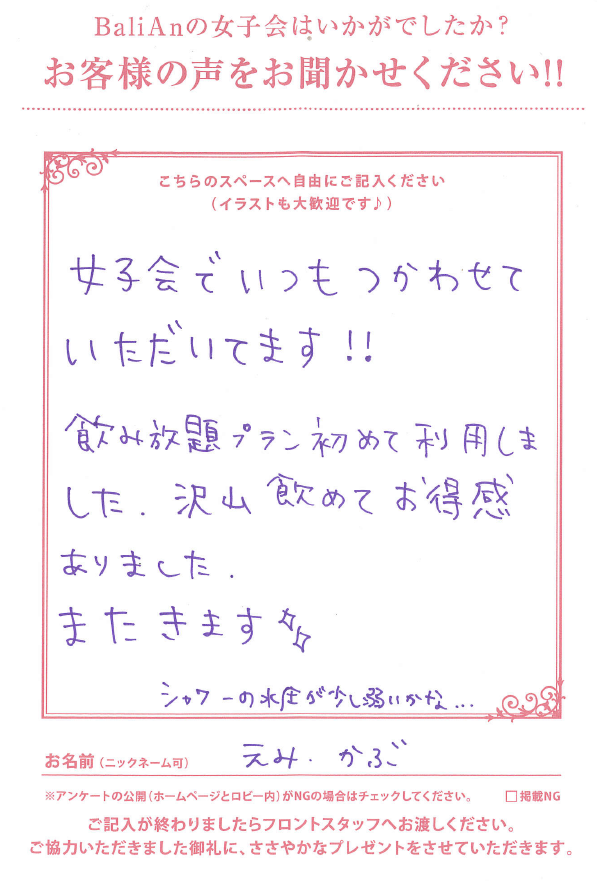 BaliAnの女子会はいかがでしたか?
お客様の声をお聞かせください!!
こちらのスペースへ自由にご記入ください
(イラストも大歓迎です♪)
女子会でいつもつかわせて
いただいてます!!
飲み放題プラン初めて利用しま
した. 沢山飲めてお得感
ありました.
またきます
シャワーの水圧が少し弱いかな...
お名前(ニックネーム可) えみ.かぶご
※アンケートの公開(ホームページとロビー内)がNGの場合はチェックしてください。 □掲載NG
ご記入が終わりましたらフロントスタッフへお渡しください。
ご協力いただきました御礼に、ささやかなプレゼントをさせていただきます。